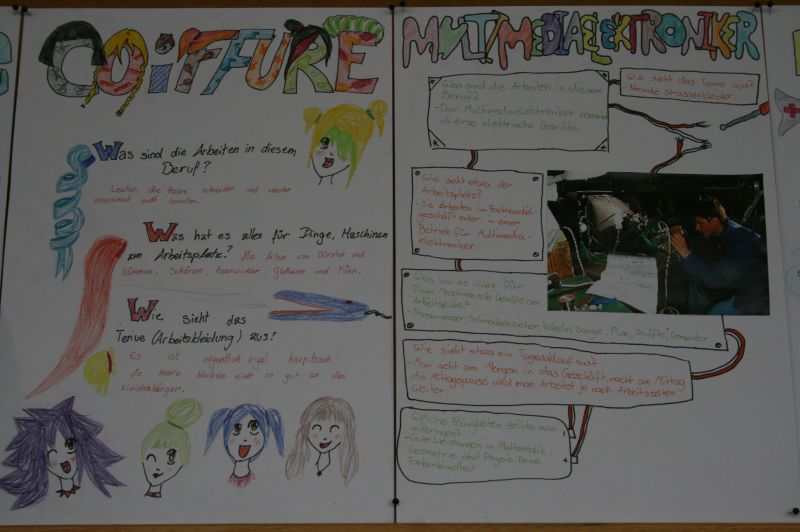 COIFFURE
Was sind die Arbeiten in diesem
Beruf?
Leuten die Haare schneiden und
manchmal auch
Was hat es alles für Dinge, Maschinen
am Arbeitsplatz? Alle Arten von Bürsten und
Kämmen. Scheren, Glätteisen und Föhn.
Wie sieht das
Tenue (Arbeitskleidung) aus?
Es ist eigentlich egal hauptsach
die Haare bleiben nicht so gut an den
MULTIMEDIAELEKTRONIKER
Was sind die Arbeiten in diesem
Beruf?
-Der Multimediaelektroniker
diverse elektrische Geräte
Wie sieht das Tenue aus?
-Normale Strassenkleider
Wie sieht etwa der
Arbeitsplatz?
Sie Arbeiten im Fachhandel-
geschäft oder in einem
Betrieb für Multimedia-
elektroniker
Was hat es alles für
Dinge, Maschinen und Geräte am
Arbeitsplatz?
-Strommesser, Schraubenzieher, Kabeln, Zange, Plan, Stifte, Computer
Wie sieht etwa ein Tagesablauf aus?
-Man geht am Morgen in das Geschäft, macht am Mittag
die Mittagspause und man Arbeitet je nach Arbeitszeiten
weiter
Welche Fähigkeiten sollte man
mitbringen?
-Gute Leistungen in Mathematik,
Geometrie und Physik. Keine
Farbenblindheit